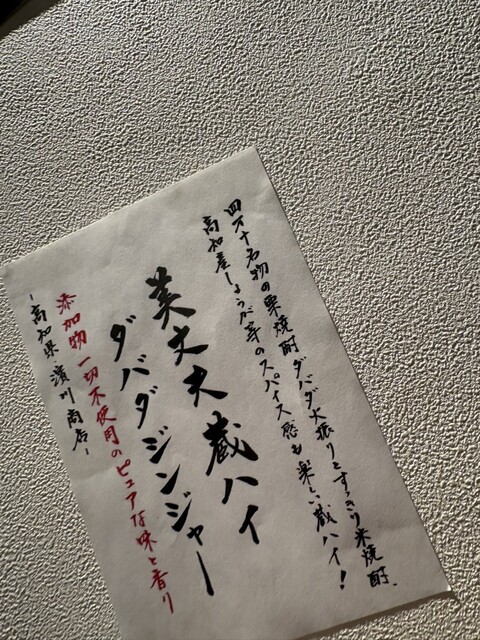 四万十名物の栗焼酎ダバダ火振りとすっきり米焼酎、
高知産しょうが等のスパイス感も楽しい蔵ハイ！
美丈夫蔵ハイ
ダバダジンジャー
添加物一切不使用のピュアな味と香り
-高知県 濵川商店-